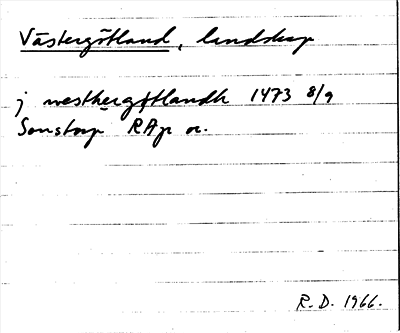 Västergötland, landskap
j westhergøtlandh 1473 8/9
Sonstorp RAp or.
R.D. 1966.